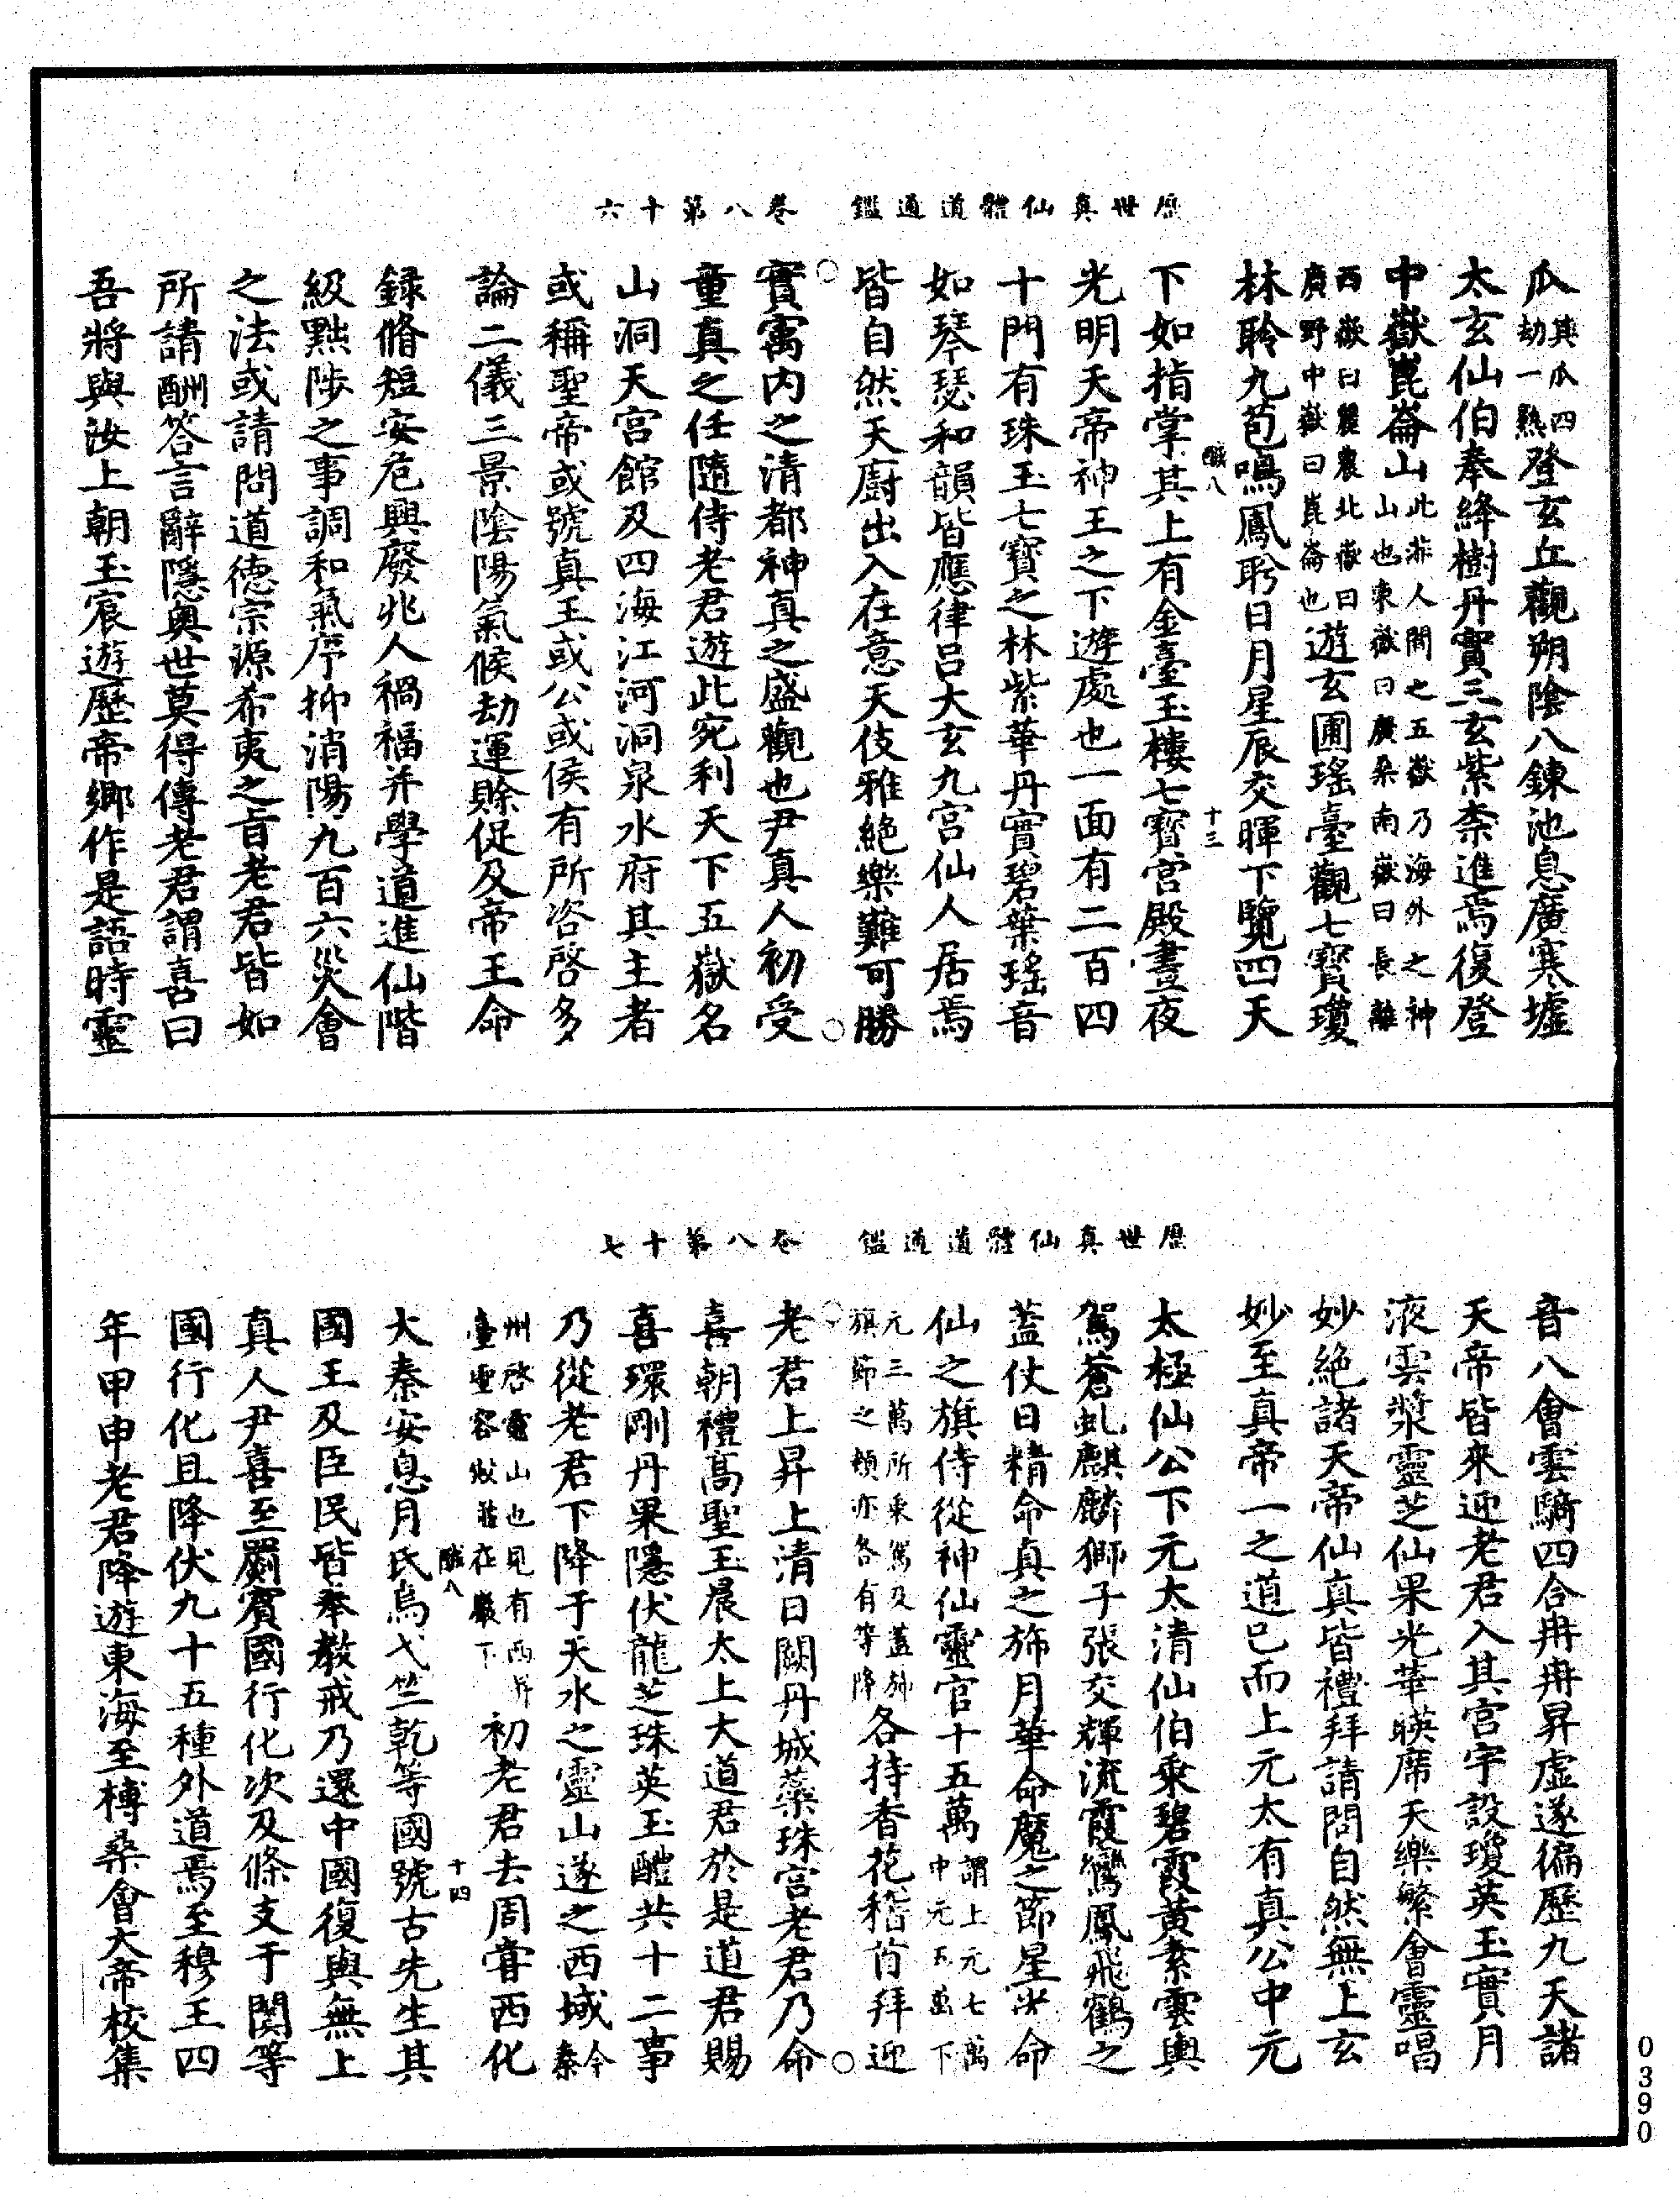 歷世真仙體道通鑑　卷八第十六
瓜其瓜四劫一熟登玄丘觀朔陰八鍊池息廣寒墟
太玄仙伯奉絳樹丹實三玄紫柰進焉復登
中嶽崑崙山此非人間之五嶽乃海外之神山也東嶽曰廣桑南嶽曰長離
西嶽曰麗農北嶽曰廣野中嶽曰崑崙也遊玄圃瑤臺觀七寶瓊
林聆九苞鳴鳳聆日月星辰交暉下覽四天
職八　十三
下如指掌其上有金臺玉樓七寶宮殿晝夜
光明天帝神王之下遊處也一面有二百四
十門有珠玉七寶之林紫華丹實碧葉瑤音
如琴瑟和韻皆應律呂大玄九宮仙人居焉
皆自然天廚出入在意天伎雅絕樂難可勝
實寓内之清都神真之盛觀也尹真人初受
童真之任隨侍老君遊此宛利天下五嶽名
山洞天宮館及四海江河洞泉水府其主者
或稱聖帝或號真王或公或侯有所咨啓多
論二儀三景陰陽氣候劫運賒促及帝王命
録脩短安危興廢兆人禍福并學道進仙階
級點陟之事調和氣序抑消陽九百六災會
之法或請問道德宗源希夷之旨老君皆如
所請酬答言辭隱奧世莫得傳老君謂喜曰
吾將與汝上朝玉宸遊歷帝鄉作是語時靈
歷世真仙體道通鑑　卷八第十七
音八會雲騎四合冉冉昇虛遂徧歷九天諸
天帝皆來迎老君入其宮宇設瓊英玉實月
液雲漿靈芝仙果光華暎席天樂繁會靈唱
妙絕諸天帝仙真皆禮拜請問自然無上玄
妙至真帝一之道已而上元太有真公中元
太極仙公下元太清仙伯乗碧霞黄素雲輿
駕蒼虬麒麟獅子張交輝流霞鸞鳳飛鶴之
蓋仗日精命真之旆月華命魔之節星光命
仙之旗侍從神仙靈官十五萬謂上元七萬中元五萬下
元三萬所乗駕及蓋旆旗節之類亦各有等降各持香花稽首拜迎
老君上昇上清日闕丹城蘂珠宮老君乃命
喜朝禮高聖玉晨太上大道君於是道君賜
喜環剛丹果隱伏龍芝珠英玉醴共十二事
乃從老君下降于天水之靈山遂之西域今秦
州啓靈山也見有西昇臺聖容敕葺在巖下初老君去周嘗西化
職八　十四
大秦安息月氏烏弋竺乾等國號古先生其
國王及臣民皆奉教戒乃還中國復與無上
真人尹喜至罽賓國行化次及條支于闐等
國行化且降伏九十五種外道焉至穆王四
年甲申老君降遊東海至榑桑會大帝校集
0390